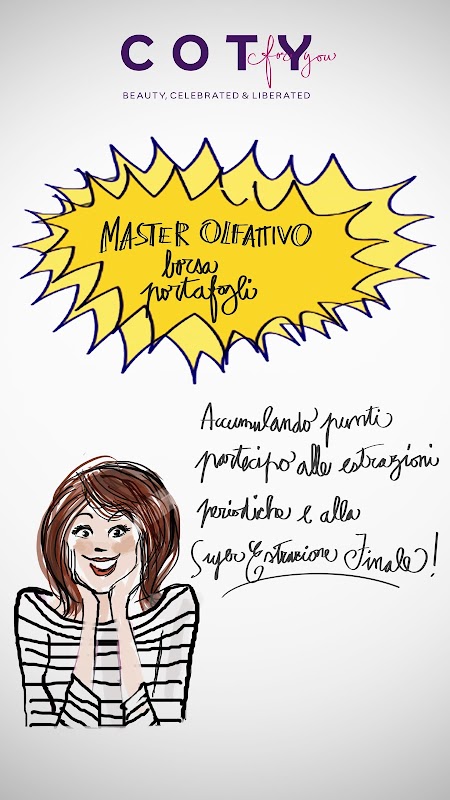 COTY for you
BEAUTY, CELEBRATED & LIBERATED
MASTER OLFATTIVO
borsa
portafogli
Accumulando punti
partecipo alle estrazioni
periodiche e alla
Super Estrazione Finale!